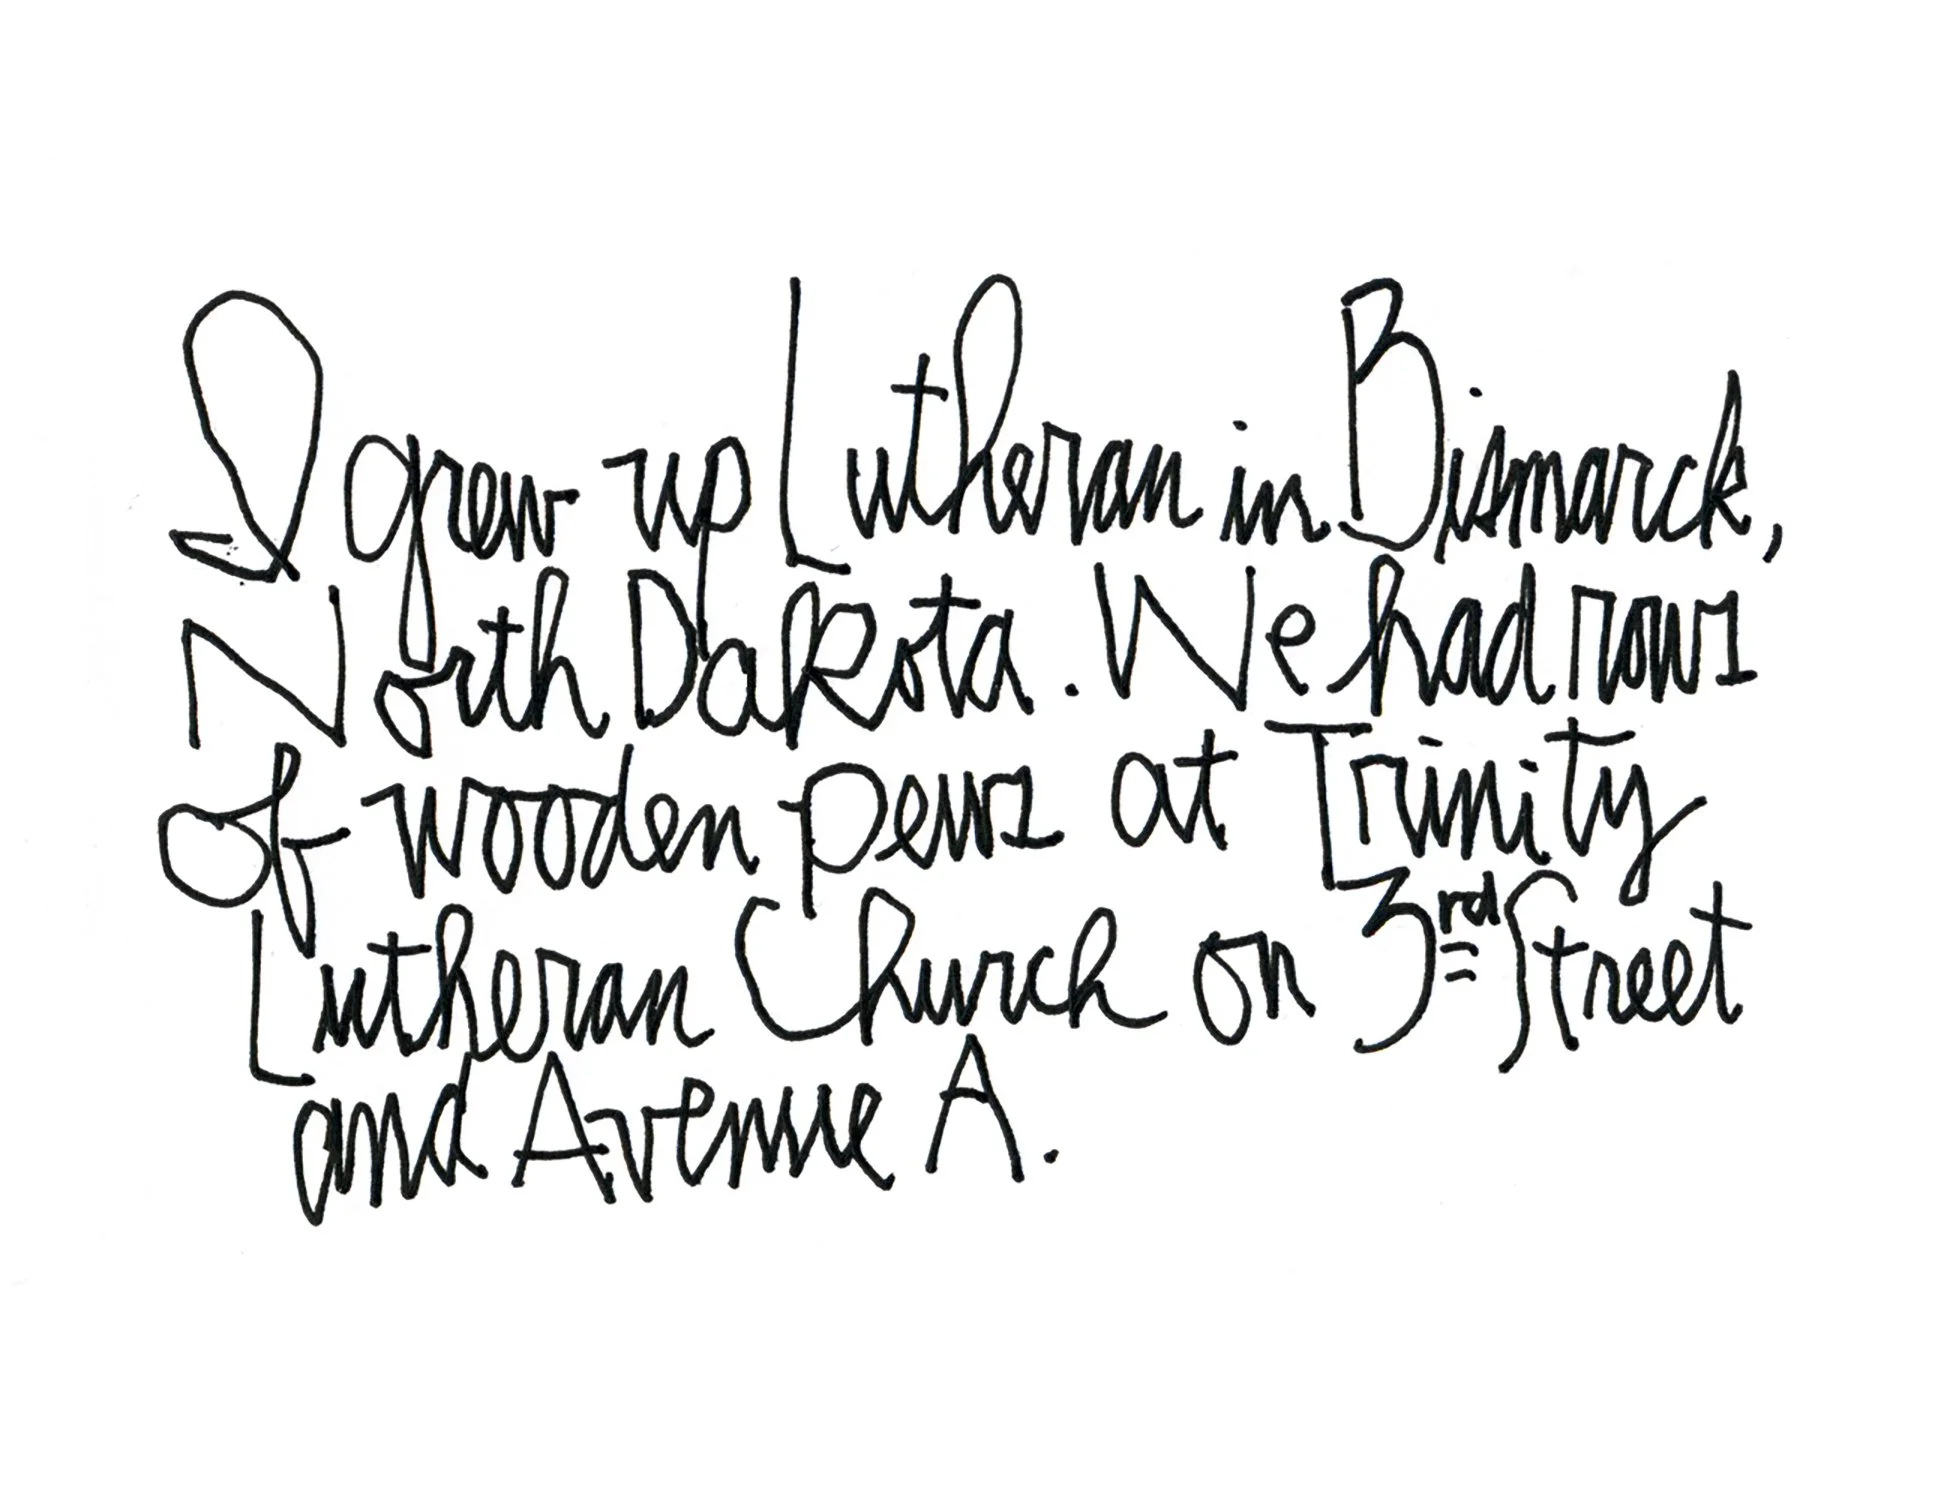 I grew up Lutheran in Bismarck,
North Dakota. We had rows
of wooden pews at Trinity
Lutheran Church on 3rd Street
and Avenue A.